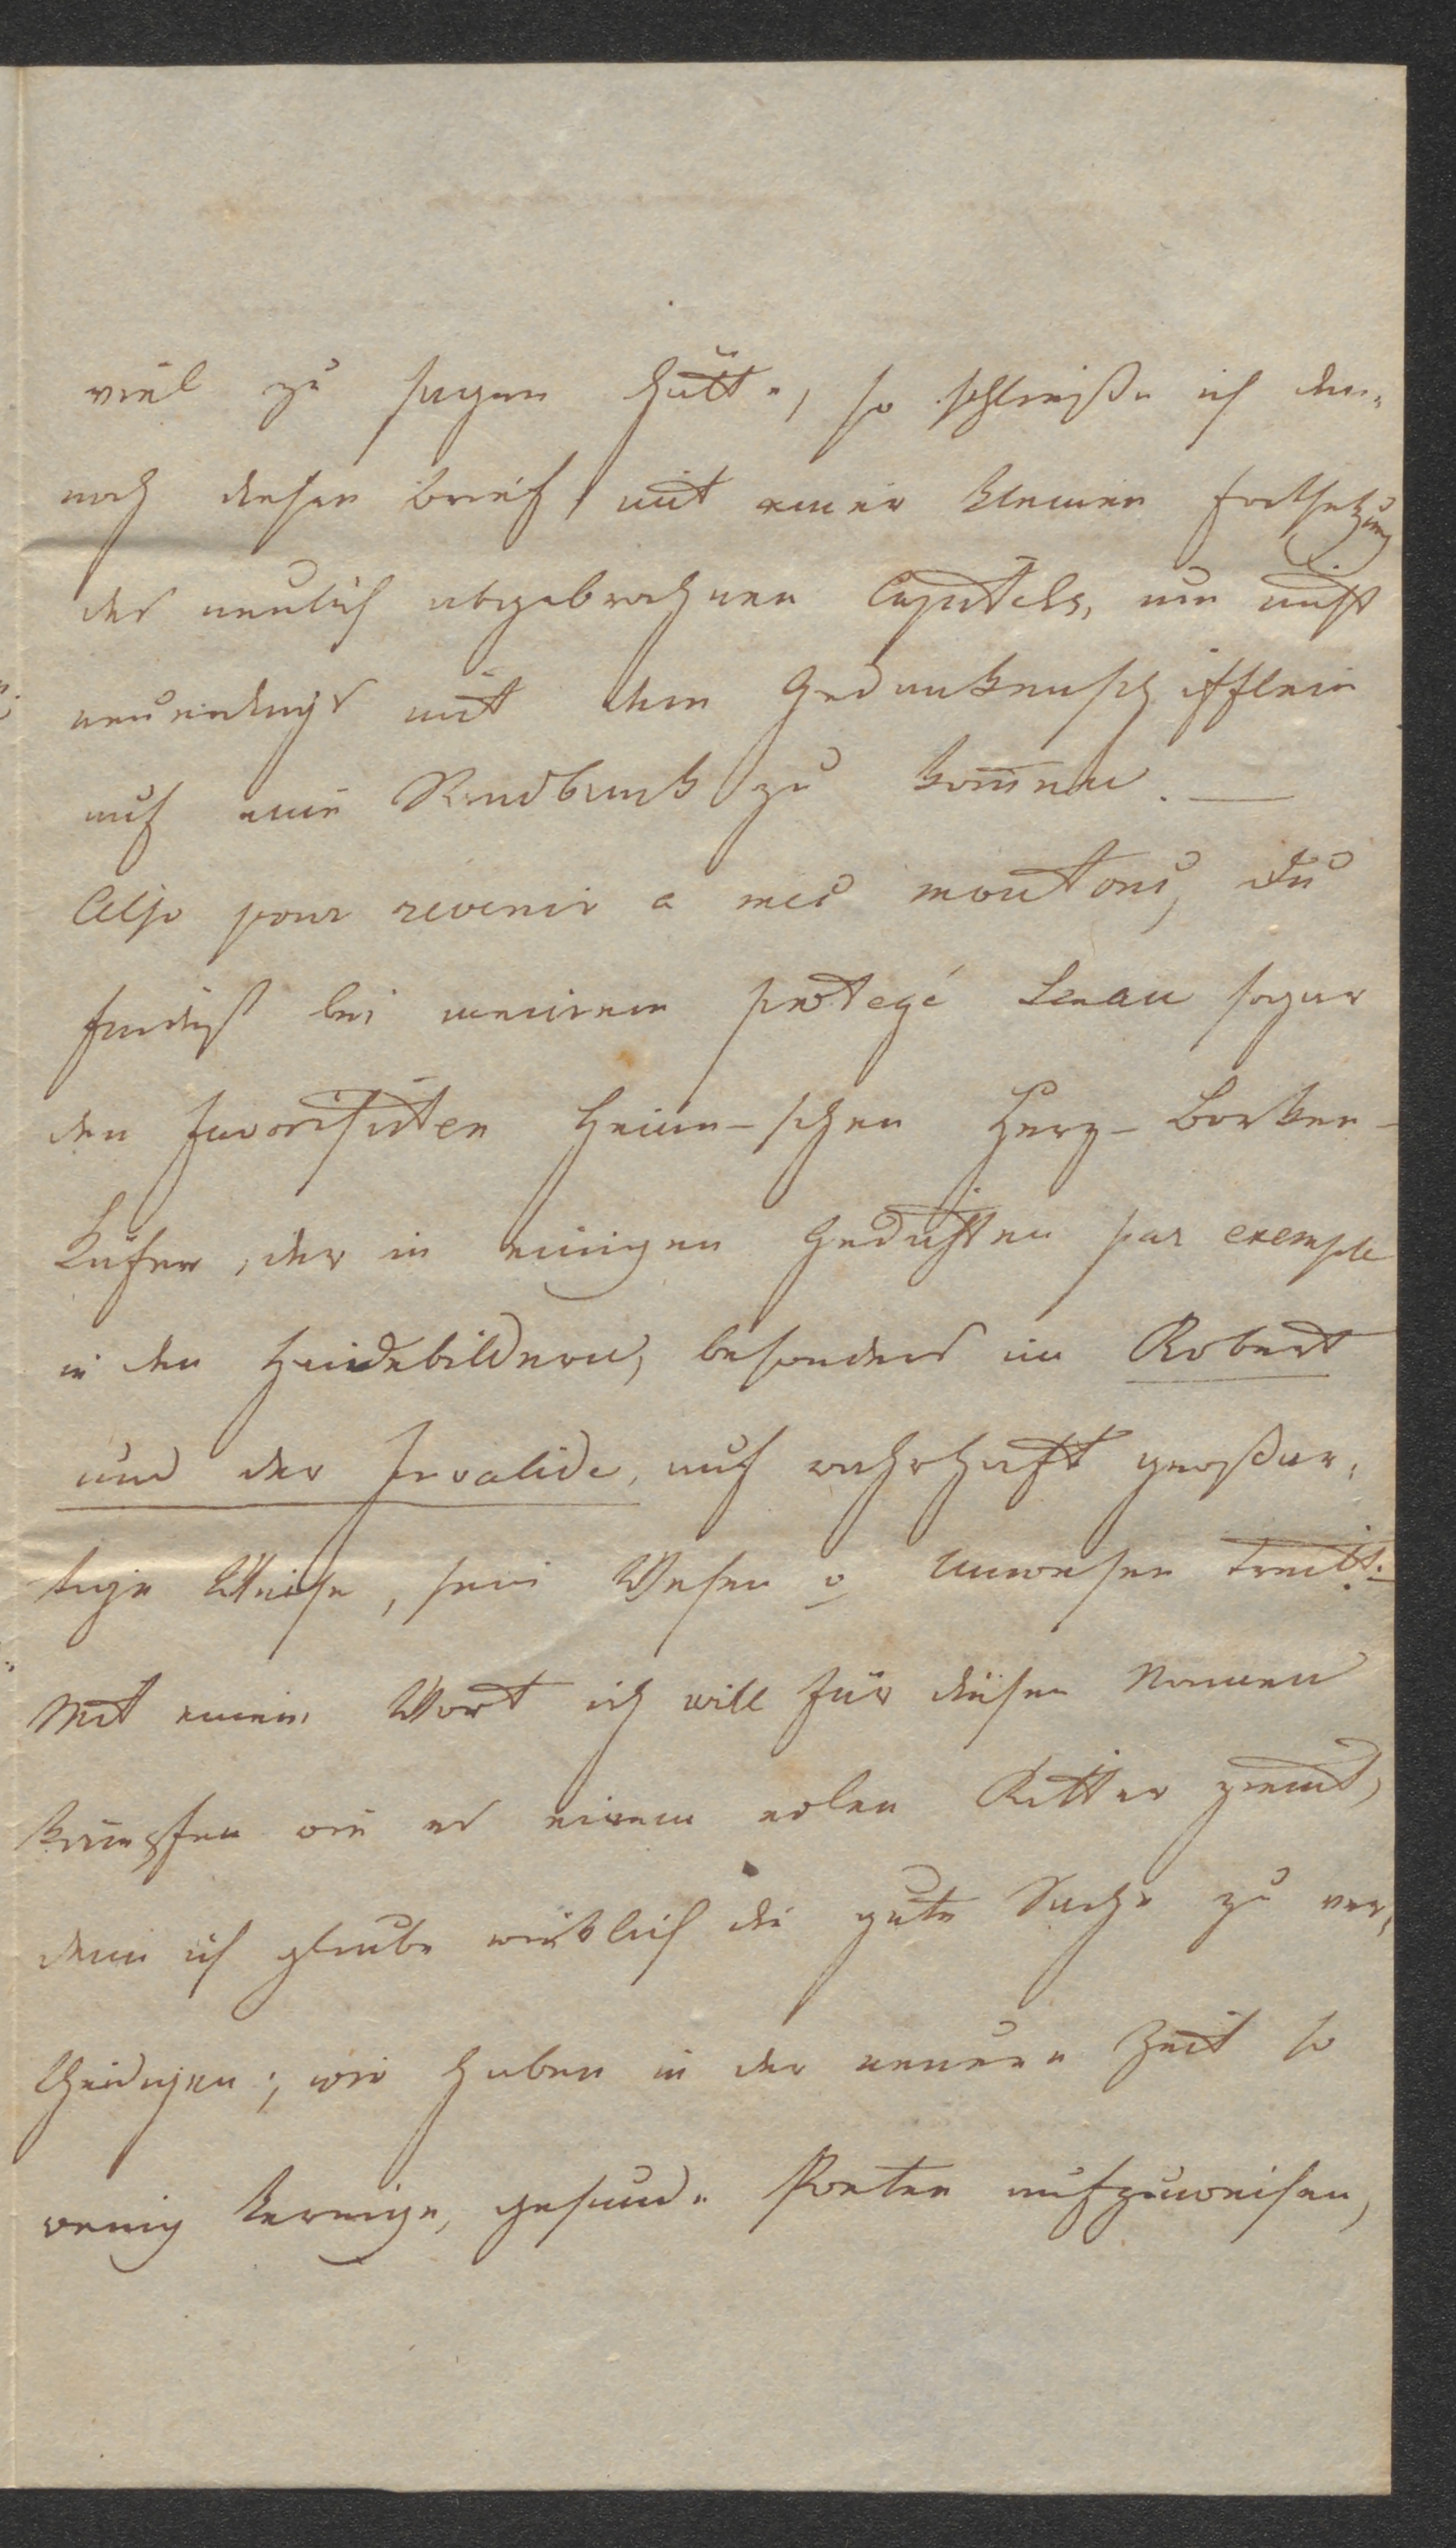 viel zu sagen hätte, so schließe ich den-
noch diesen Brief mit einer kleinen Fortsetzung
des neulich abgebrochnen Capitels, um nicht
neuerdings mit dem Gedankenschifflein
auf eine Sandbank zu kom̄en. —
Also pour revenir a mes moutons, Du
findest bei meinem protegé Lenau sogar
den favorisirten Heine-schen Herz-Borken-
käfer, der in einigen Gedichten par exemple
in den Heidebildern, besonders im Robert
und der Invalide, auf wahrhaft großar-
tige Weise, sein Wesen u Unwesen treibt.
Mit einem Wort ich will für diesen Namen
kämpfen wie es einem edlen Ritter ziemt,
denn ich glaube wirklich die gute Sache zu ver-
theidigen; wir haben in der neuern Zeit so
wenig kernige, gesunde Poeten aufzuweisen,